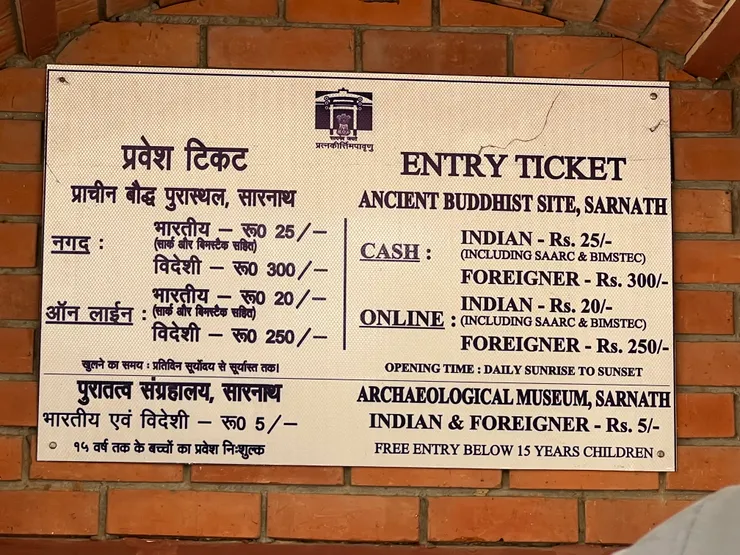 प्रत्नकीर्त्तिमपावृणु
प्रवेश टिकट
प्राचीन बौद्ध पुरास्थल, सारनाथ
नगद :
भारतीय – रू0 25/–
(सार्क और बिमस्टैक सहित)
विदेशी – रू0 300/–
ऑन लाईन :
भारतीय – रू0 20/–
(सार्क और बिमस्टैक सहित)
विदेशी – रू0 250/–
खुलने का समय : प्रतिदिन सूर्योदय से सूर्यास्त तक।
पुरातत्व संग्रहालय, सारनाथ
भारतीय एवं विदेशी – रू0 5/–
१५ वर्ष तक के बच्चों का प्रवेश निःशुल्क
ENTRY TICKET
ANCIENT BUDDHIST SITE, SARNATH
CASH :
INDIAN - Rs. 25/-
(INCLUDING SAARC & BIMSTEC)
FOREIGNER - Rs. 300/-
ONLINE :
INDIAN - Rs. 20/-
(INCLUDING SAARC & BIMSTEC)
FOREIGNER - Rs. 250/-
OPENING TIME : DAILY SUNRISE TO SUNSET
ARCHAEOLOGICAL MUSEUM, SARNATH
INDIAN & FOREIGNER - Rs. 5/-
FREE ENTRY BELOW 15 YEARS CHILDREN